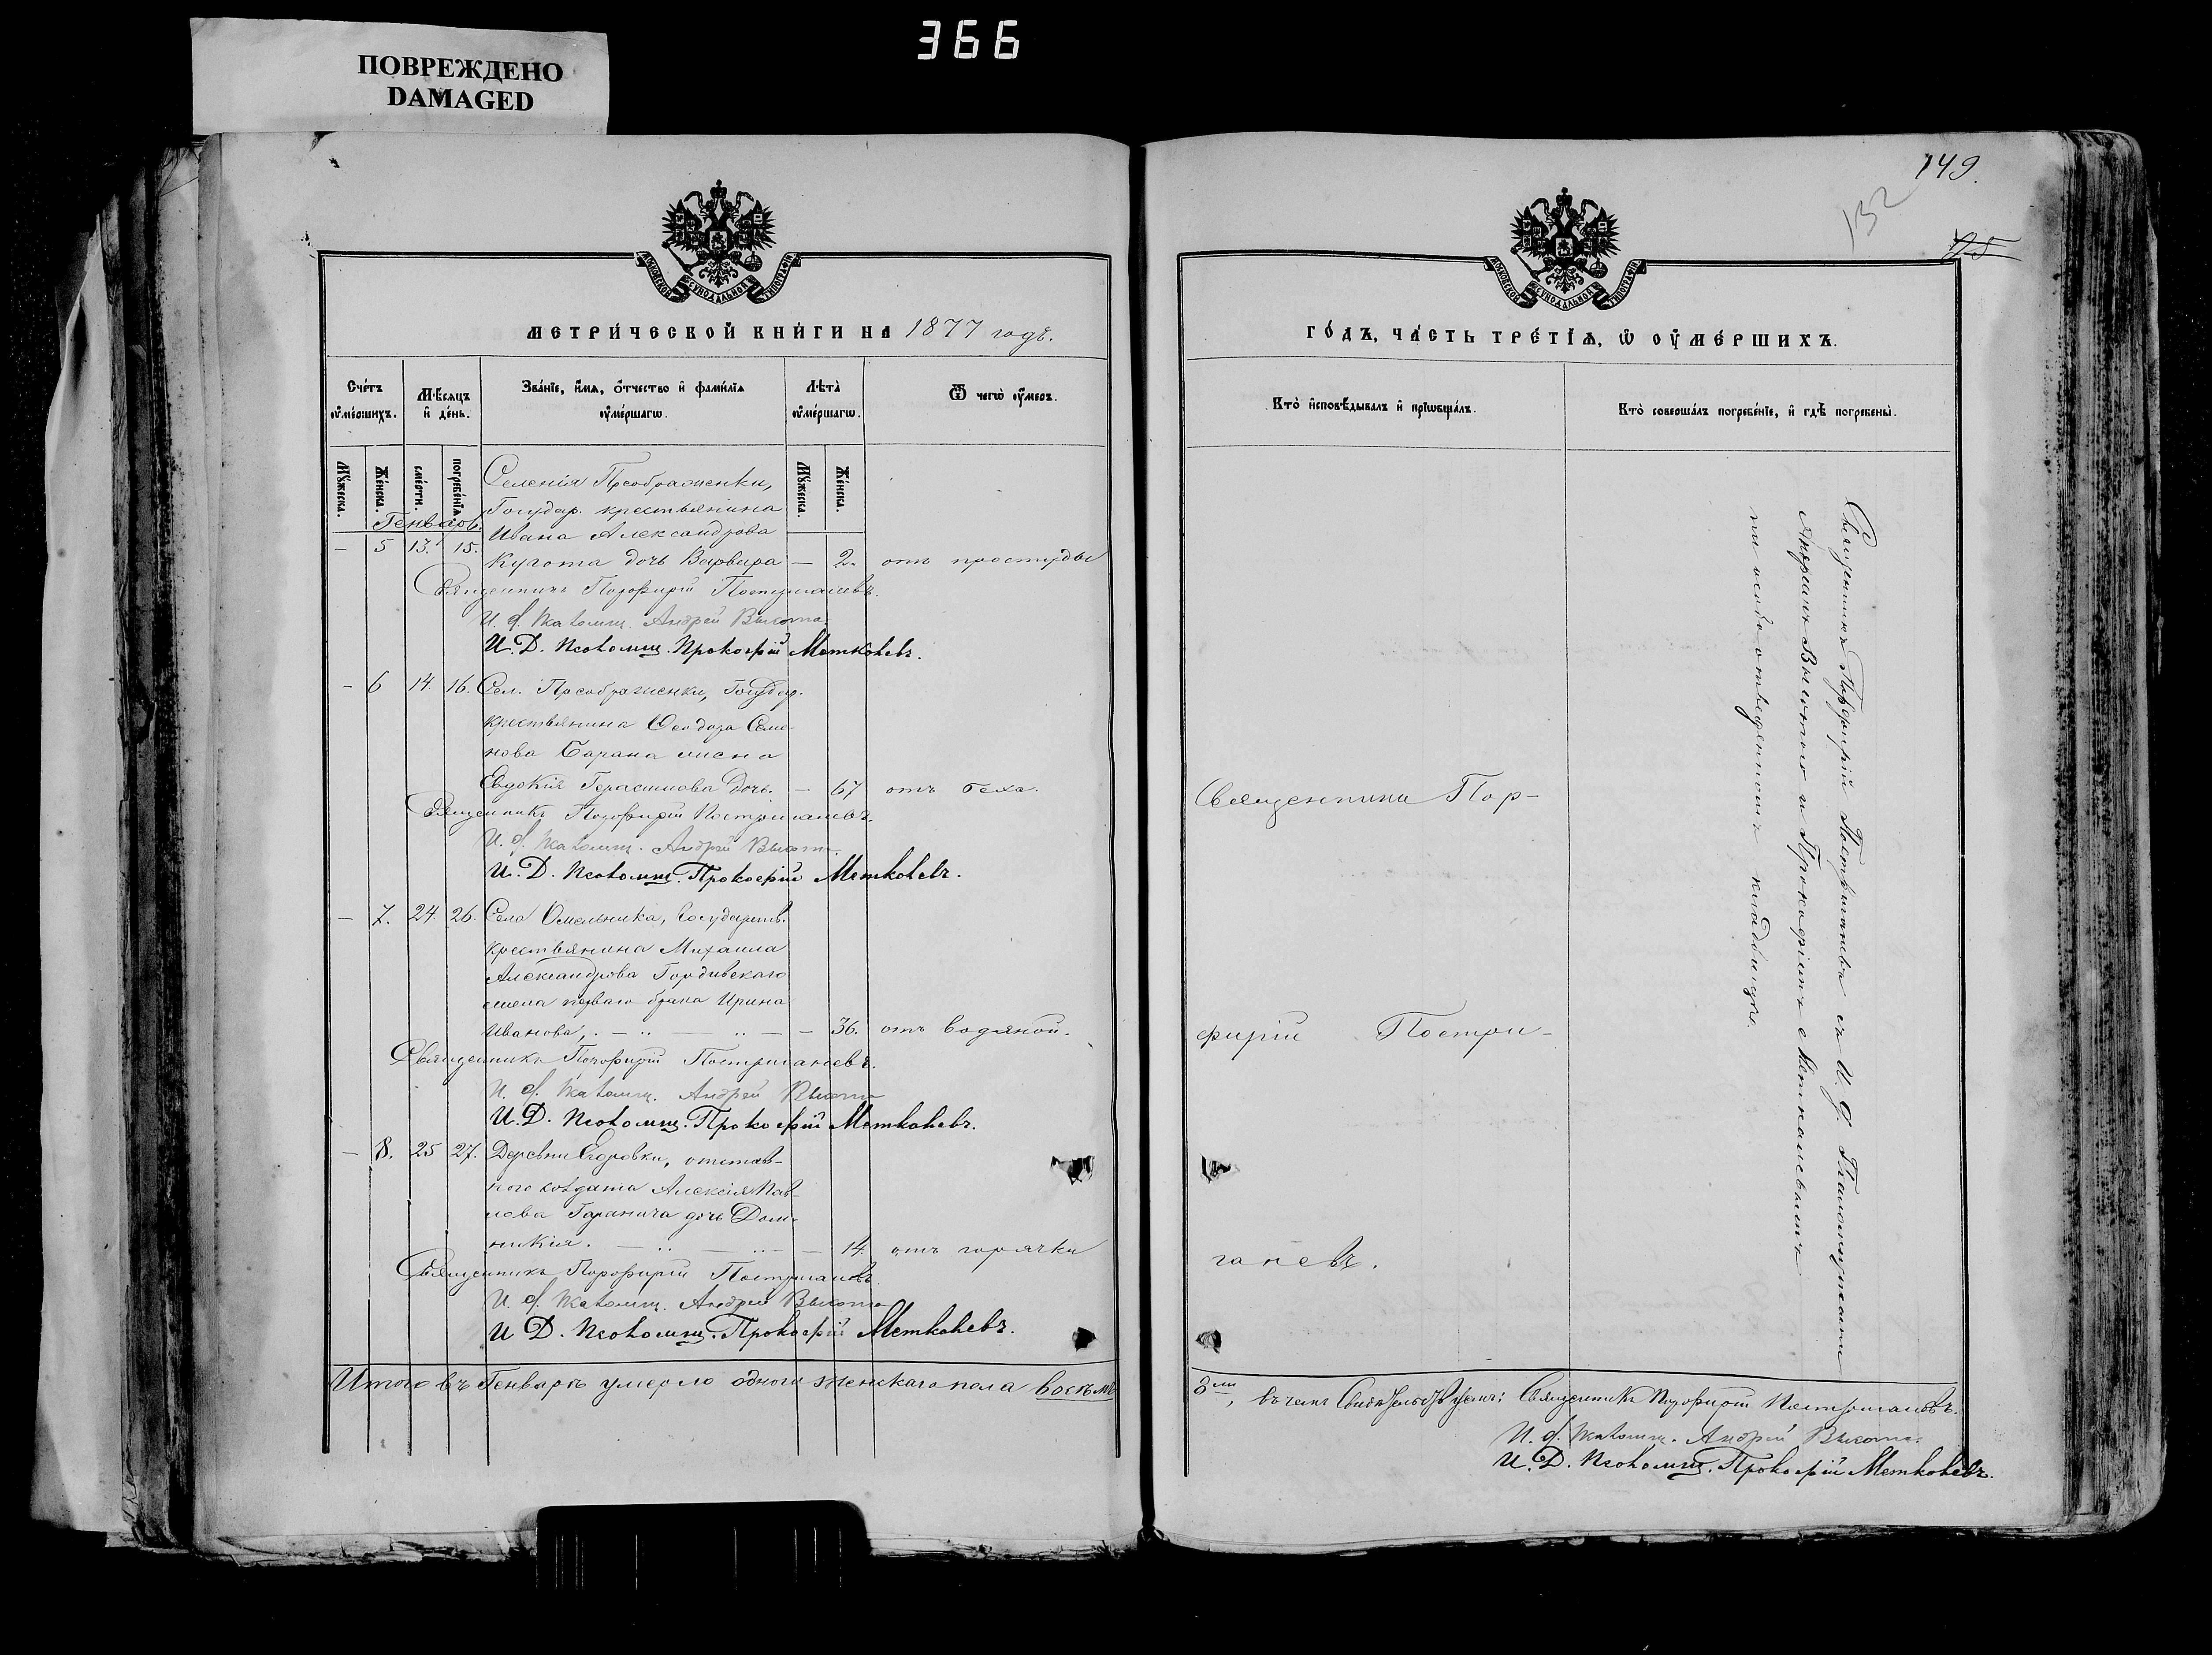 366
ПОВРЕЖДЕНО
DAMAGED
МОСКОВСКОЙ СѴНОДАЛЬНОЙ ТИПОГРАФІИ
МЕТРИ́ЧЕСКОЙ КНИ́ГИ НА 1877 годъ.
Счéтъ ᲂу҆мéршихъ.
Мѣ́сяцъ и҆ дéнь.
Звáнїе, и҆́мя, ѻ҆́тчество и҆ фами́лїя ᲂу҆мéршагѡ.
Лѣ́та ᲂу҆мéршагѡ.
Ѿ чегѡ̀ ᲂу҆́меръ.
Мꙋ́жеска.
Жéнска.
смéрти.
погребéнїя.
Мꙋ́жеска.
Жéнска.
Генварь.
Селенія Преображенки,
Государ. крестьянина
Ивана Александрова
— 5 13. 15. Кугота дочь Варвара — 2. отъ простуды
Священникъ Порфирій Постриганевъ.
И. д. Псаломщ. Андрей Высота.
И. Д. Псаломщ. Прокофій Меткалевъ.
— 6 14. 16. Сел. Преображенки, Государ.
крестьянина Ѳеодора Семе-
нова Барана жена
Евдокія Герасимова дочь. — 67 отъ
Священникъ Порфирій Постриганевъ.
И. д. Псаломщ. Андрей Высота.
И. Д. Псаломщ. Прокофій Меткалевъ.
— 7. 24. 26. Села Омельника, Государств.
крестьянина Михаила
Александрова Гордиевскаго
жена перваго брака Ирина
Иванова, — — — 36. отъ водяной.
Священникъ Порфирій Постриганевъ.
И. д. Псаломщ. Андрей Высота
И. Д. Псаломщ. Прокофій Меткалевъ.
— 8. 25 27. Деревни Егоровки, отстав-
ного солдата Алексія Пав-
лова Гаранича дочь Дом-
никія. — — — 14. отъ горячки
Священникъ Порфирій Постриганевъ.
И. д. Псаломщ. Андрей Высота
И Д. Псаломщ. Прокофій Меткалевъ.
Итого въ Генварѣ умерло одного женскаго пола восемь
149.
132
МОСКОВСКОЙ СѴНОДАЛЬНОЙ ТИПОГРАФІИ
ГО́ДЪ, ЧА́СТЬ ТРЕ́ТІЯ, Ѡ ОУ҆МЕ́РШИХЪ.
Ктò и҆сповѣ́дывалъ и҆ прїѡбщáлъ.
Ктò совершáлъ погребéнїе, и҆ гдѣ̀ погребены̀.
Священникъ Пор-
фирій Постри-
ганевъ.
Священникъ Порфирій Постриганевъ съ И. д. Псаломщиками
Андреемъ Высотою и Прокофіемъ Меткалевымъ
на особо отведенномъ кладбищѣ.
8ми, въ чемъ свидѣтельствуемъ: Священникъ Порфирій Постриганевъ.
И. д. Псаломщ. Андрей Высота.
И. Д. Псаломщ. Прокофій Меткалевъ.